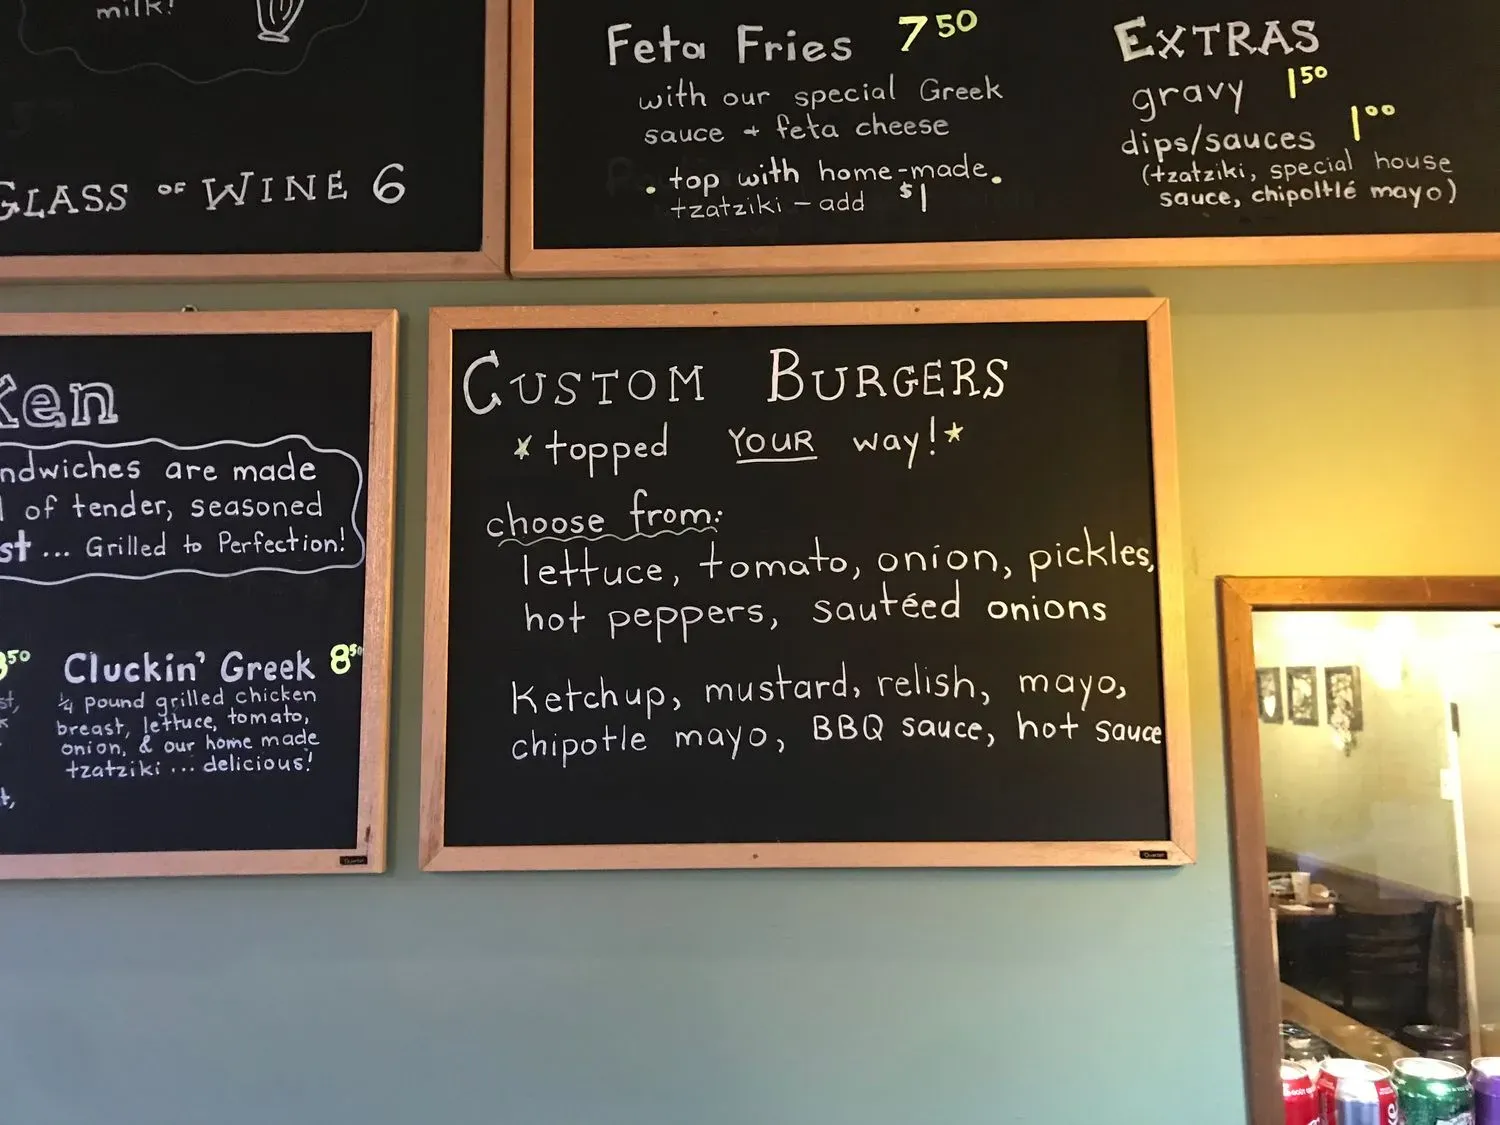 milk!
GLASS OF WINE 6
Feta Fries 7 50
with our special Greek
sauce + feta cheese
• top with home-made •
tzatziki – add $1
EXTRAS
gravy 1 50
dips/sauces 1 00
(tzatziki, special house
sauce, chipoltlé mayo)
ken
ndwiches are made
of tender, seasoned
st ... Grilled to Perfection!
50
Cluckin' Greek 8 50
¼ pound grilled chicken
breast, lettuce, tomato,
onion, & our home made
tzatziki ... delicious!
CUSTOM BURGERS
* topped YOUR way! *
choose from:
lettuce, tomato, onion, pickles,
hot peppers, sautéed onions
Ketchup, mustard, relish, mayo,
chipotle mayo, BBQ sauce, hot sauce
Quartet
Quartet